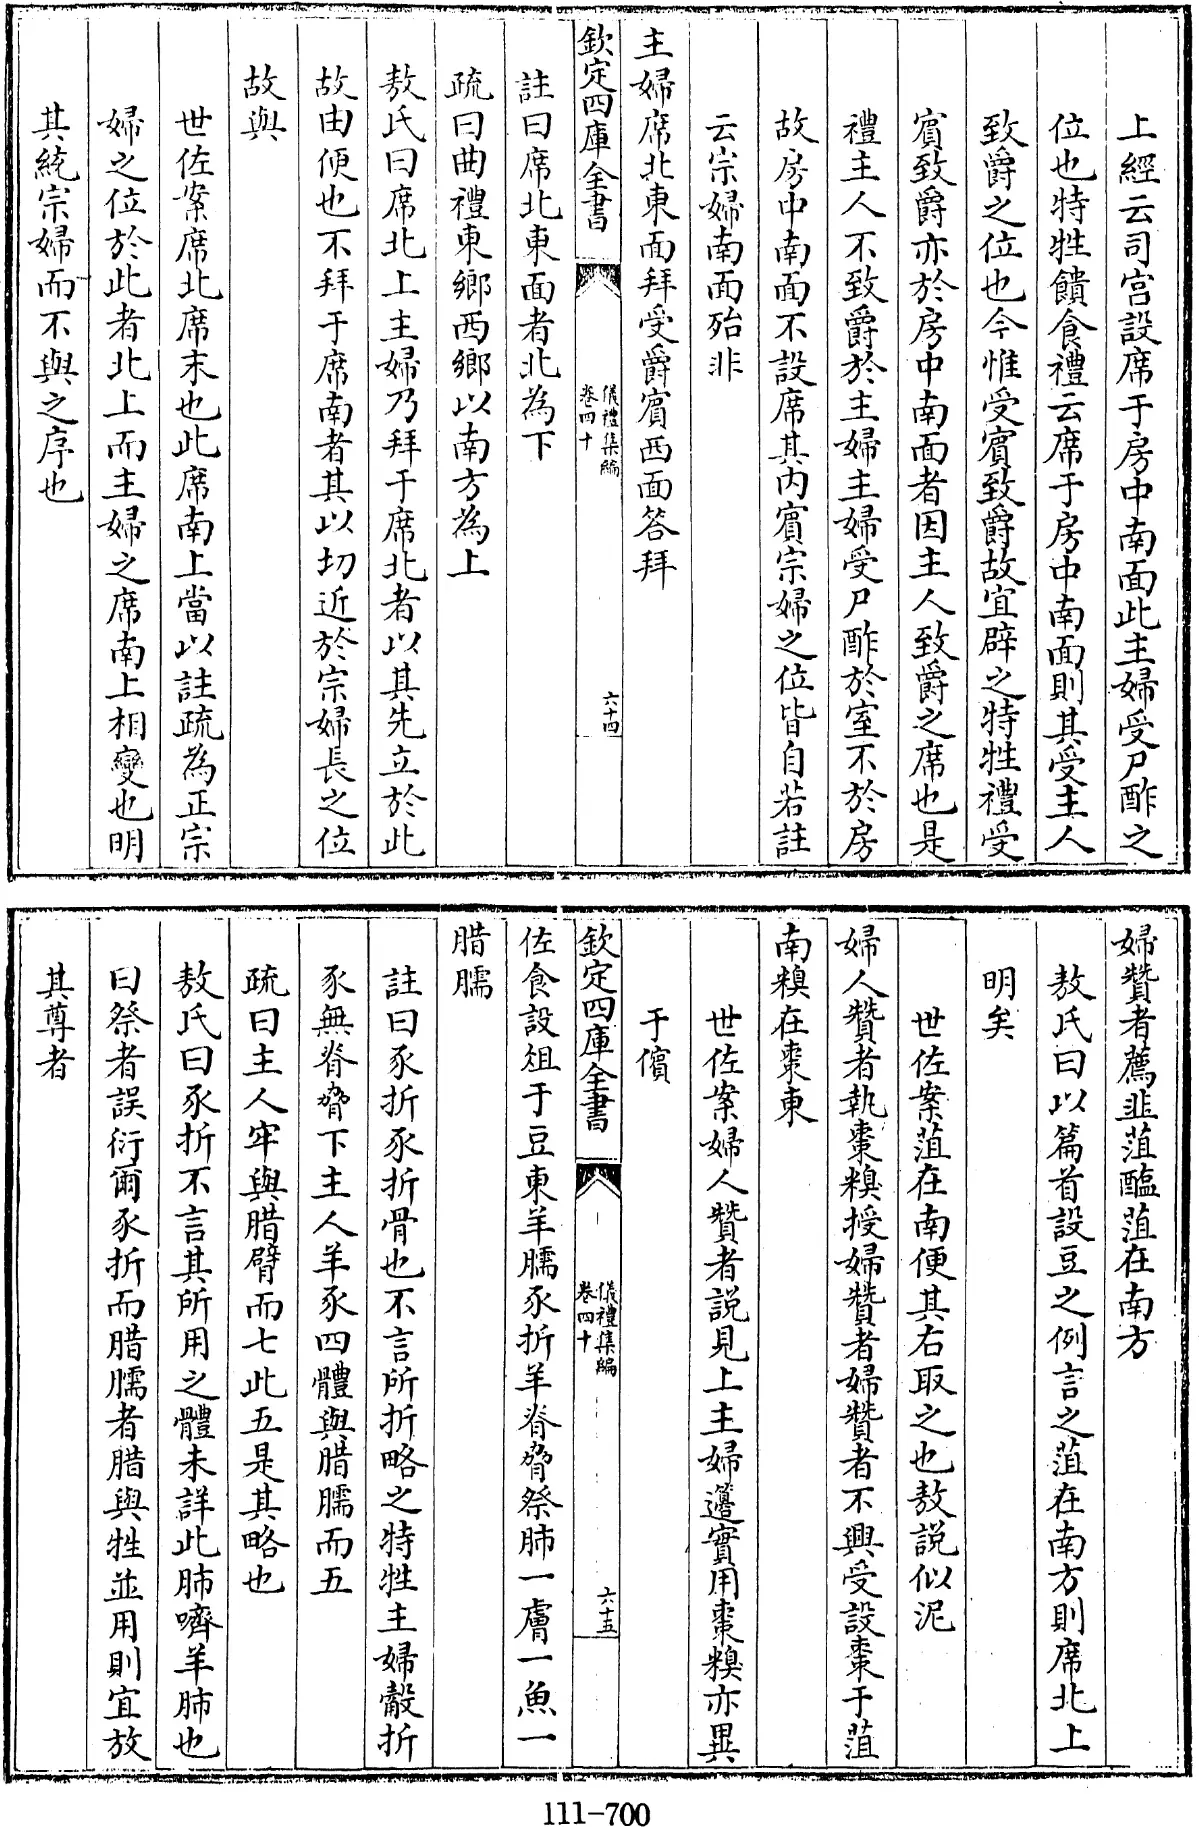 上經云司宫設席于房中南面此主婦受尸酢之
位也特牲饋食禮云席于房中南面則其受主人
致爵之位也今惟受賓致爵故宜辟之特牲禮受
賓致爵亦於房中南面者因主人致爵之席也是
禮主人不致爵於主婦主婦受尸酢於室不於房
故房中南面不設席其内賓宗婦之位皆自若註
云宗婦南面殆非
主婦席北東面拜受爵賓西面答拜
欽定四庫全書
儀禮集編
卷四十
六十四
註曰席北東面者北為下
疏曰曲禮東鄉西鄉以南方為上
敖氏曰席北上主婦乃拜于席北者以其先立於此
故由便也不拜于席南者其以切近於宗婦長之位
故與
世佐案席北席末也此席南上當以註疏為正宗
婦之位於此者北上而主婦之席南上相變也明
其統宗婦而不與之序也
婦贊者薦韭菹醢菹在南方
敖氏曰以篇首設豆之例言之菹在南方則席北上
明矣
世佐案菹在南便其右取之也敖説似泥
婦人贊者執棗糗授婦贊者婦贊者不興受設棗于菹
南糗在棗東
世佐案婦人贊者説見上主婦籩實用棗糗亦異
于儐
欽定四庫全書
儀禮集編
卷四十
六十五
佐食設俎于豆東羊臑豕折羊脊脅祭肺一膚一魚一
腊臑
註曰豕折豕折骨也不言所折略之特牲主婦觳折
豕無脊脅下主人羊豕四體與腊臑而五
疏曰主人牢與腊臂而七此五是其略也
敖氏曰豕折不言其所用之體未詳此肺嚌羊肺也
曰祭者誤衍爾豕折而腊臑者腊與牲並用則宜放
其尊者
111-700